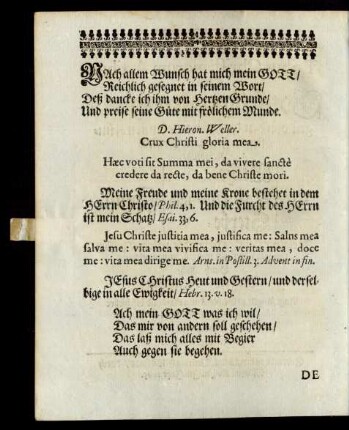 NAch allem Wunsch hat mich mein GOTT/
Reichlich gesegnet in seinem Wort/
Deß dancke ich ihm von Hertzen Grunde/
Und preise seine Güte mit frölichem Munde.
D. Hieron. Weller.
Crux Christi gloria mea.
Hæc voti sit Summa mei, da vivere sanctè
credere da recte, da bene Christe mori.
Meine Freude und meine Krone bestehet in dem
HErrn Christo/ Phil. 4,1. Und die Furcht des HErrn
ist mein Schatz/ Esai. 33,6.
Jesu Christe justitia mea, justifica me: Salus mea
salva me: vita mea vivifica me: veritas mea, doce
me: vita mea dirige me. Arns. in Postill. 3. Advent in fin.
JEsus CHristus Heut und Gestern/ und dersel-
bige in alle Ewigkeit/ Hebr. 13. v. 18.
Ach mein GOTT was ich wil/
Das mir von andern soll geschehen/
Das laß mich alles mit Begier
Auch gegen sie begehen.
DE